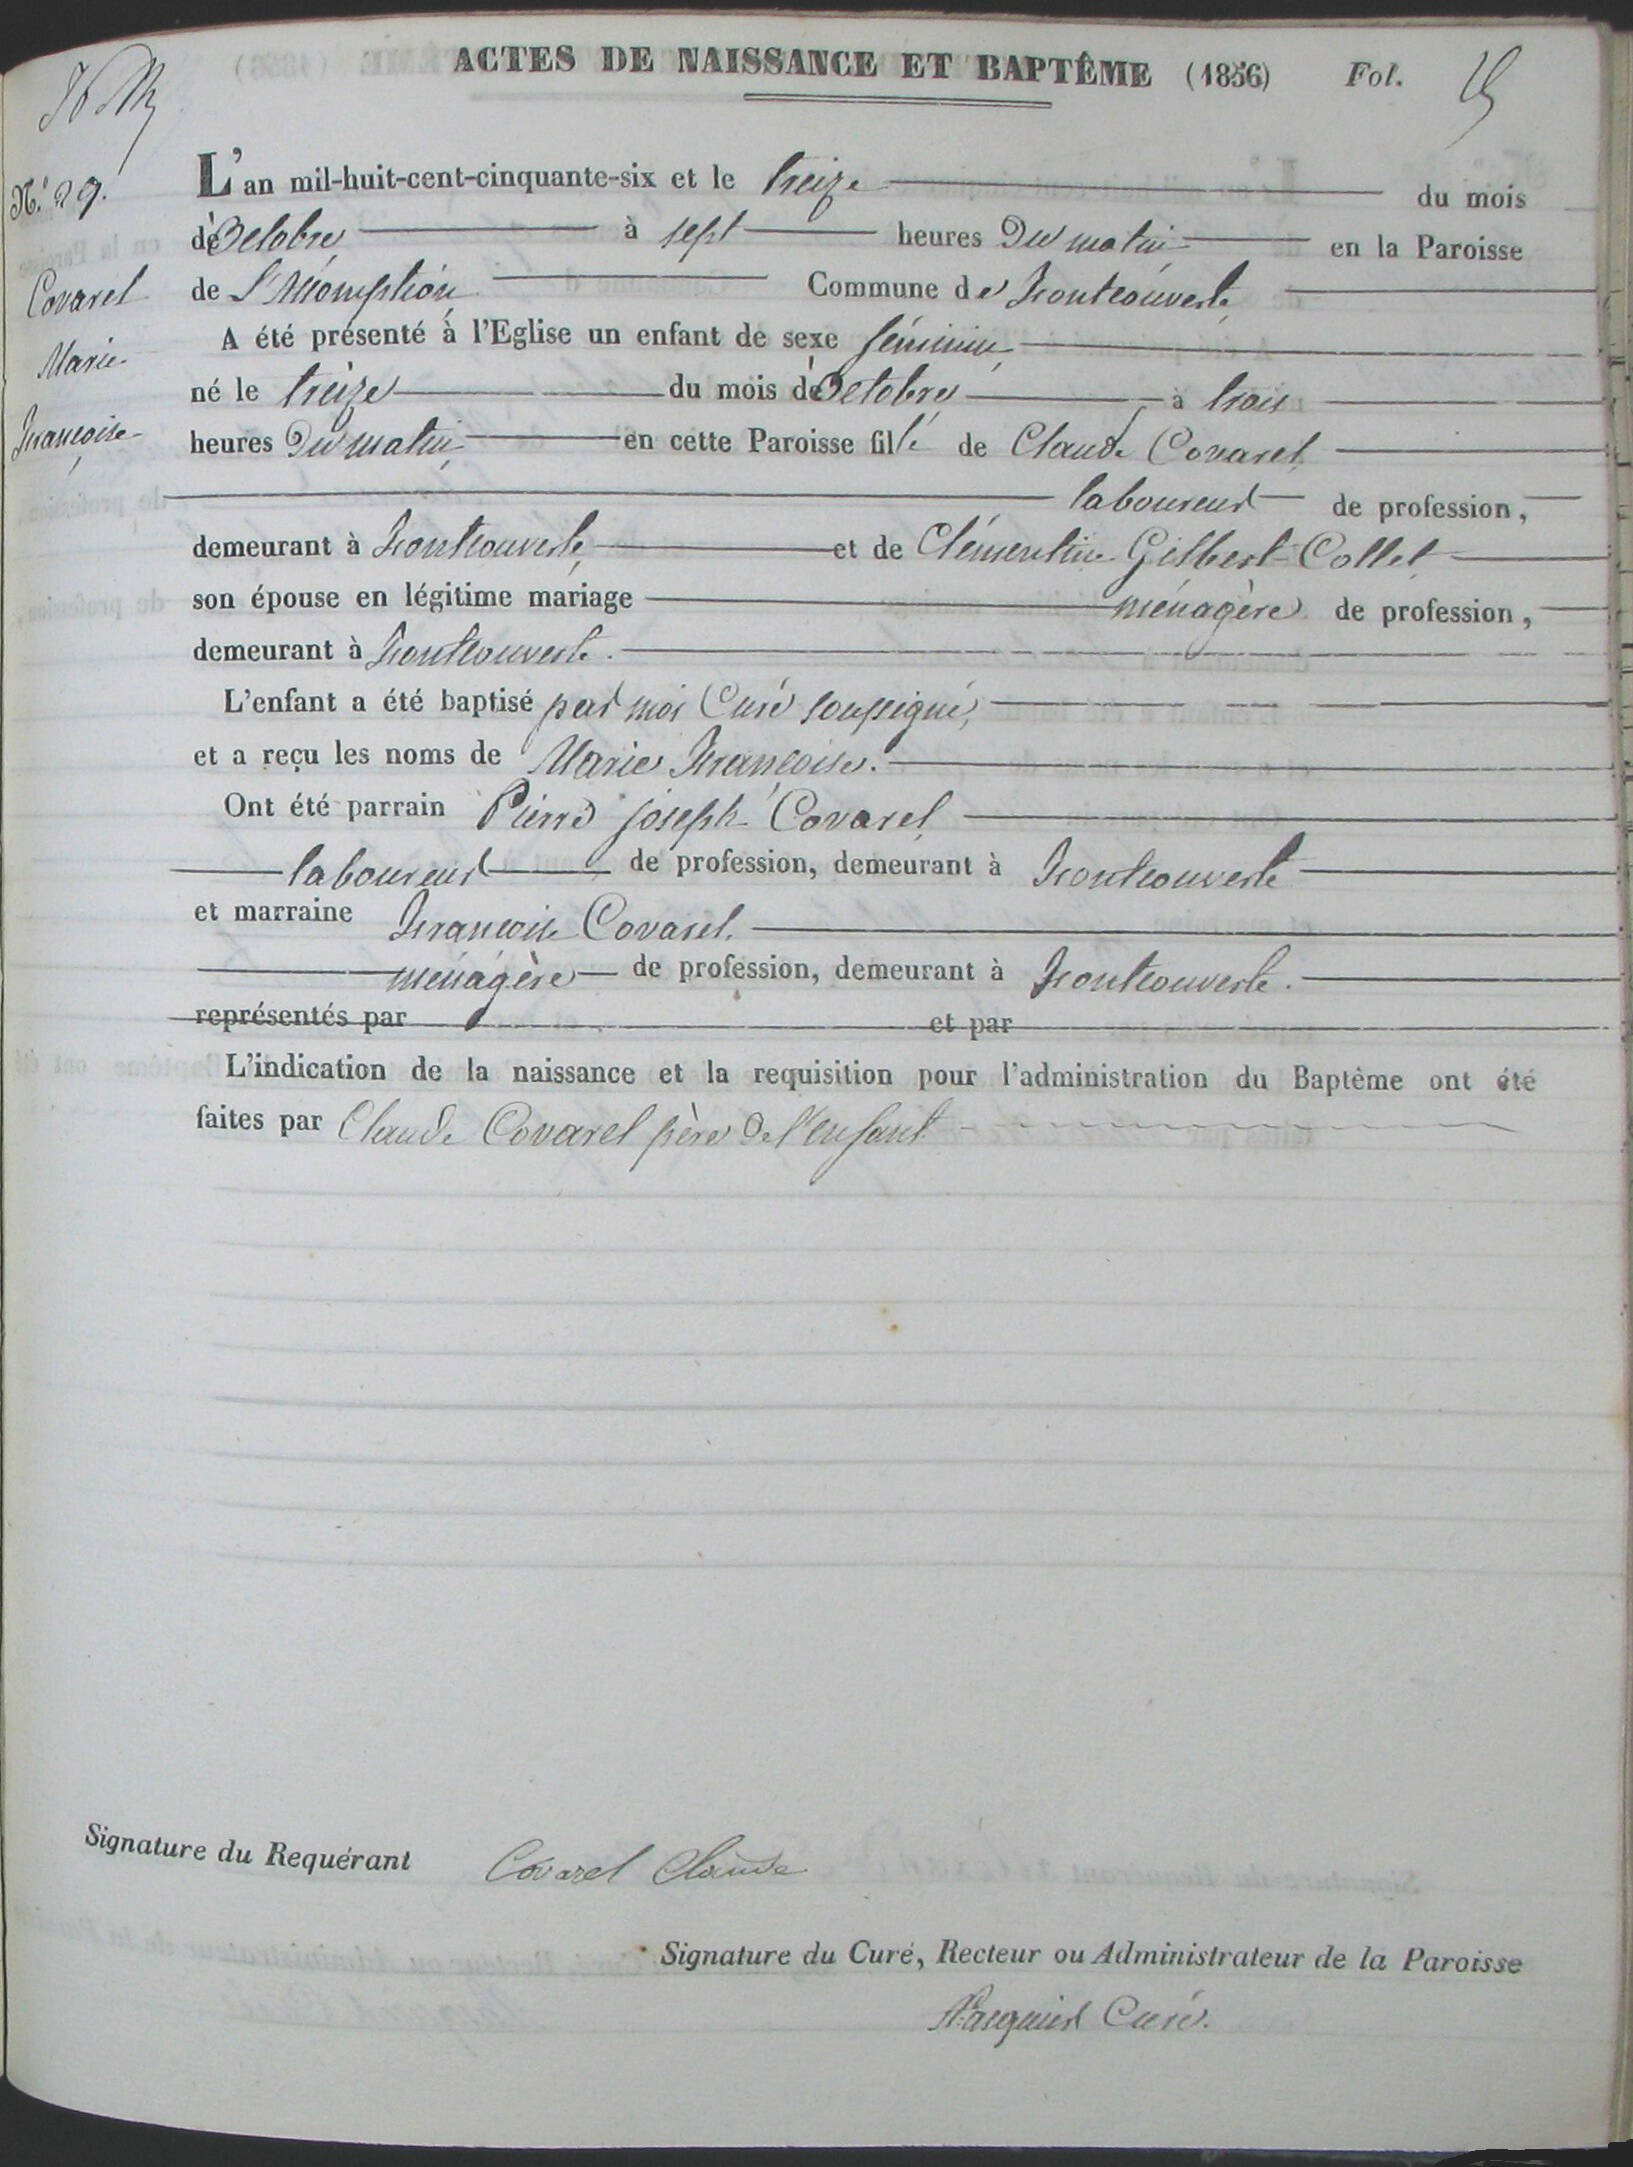 ACTES DE NAISSANCE ET BAPTÊME (1856) Fol. 15
N.º 29.
Covarel
Marie
Françoise
L'an mil-huit-cent-cinquante-six et le treize du mois
de Octobre à sept heures Du matin en la Paroisse
de L'Assomption Commune de Montcouverte
A été présenté à l'Eglise un enfant de sexe féminin
né le treize du mois de Octobre à trois
heures Du matin en cette Paroisse fille de Claude Covarel
laboureur de profession,
demeurant à Montcouverte et de Clémentine Gilbert-Collet
son épouse en légitime mariage ménagère de profession,
demeurant à Montcouverte.
L'enfant a été baptisé par moi Curé soussigné,
et a reçu les noms de Marie Françoise.
Ont été parrain Pierre joseph Covarel
laboureur de profession, demeurant à Montcouverte
et marraine Françoise Covarel.
ménagère de profession, demeurant à Montcouverte.
représentés par et par
L'indication de la naissance et la requisition pour l'administration du Baptême ont été
faites par Claude Covarel père de l'enfant
Signature du Requérant Covarel Claude
Signature du Curé, Recteur ou Administrateur de la Paroisse
Curé.